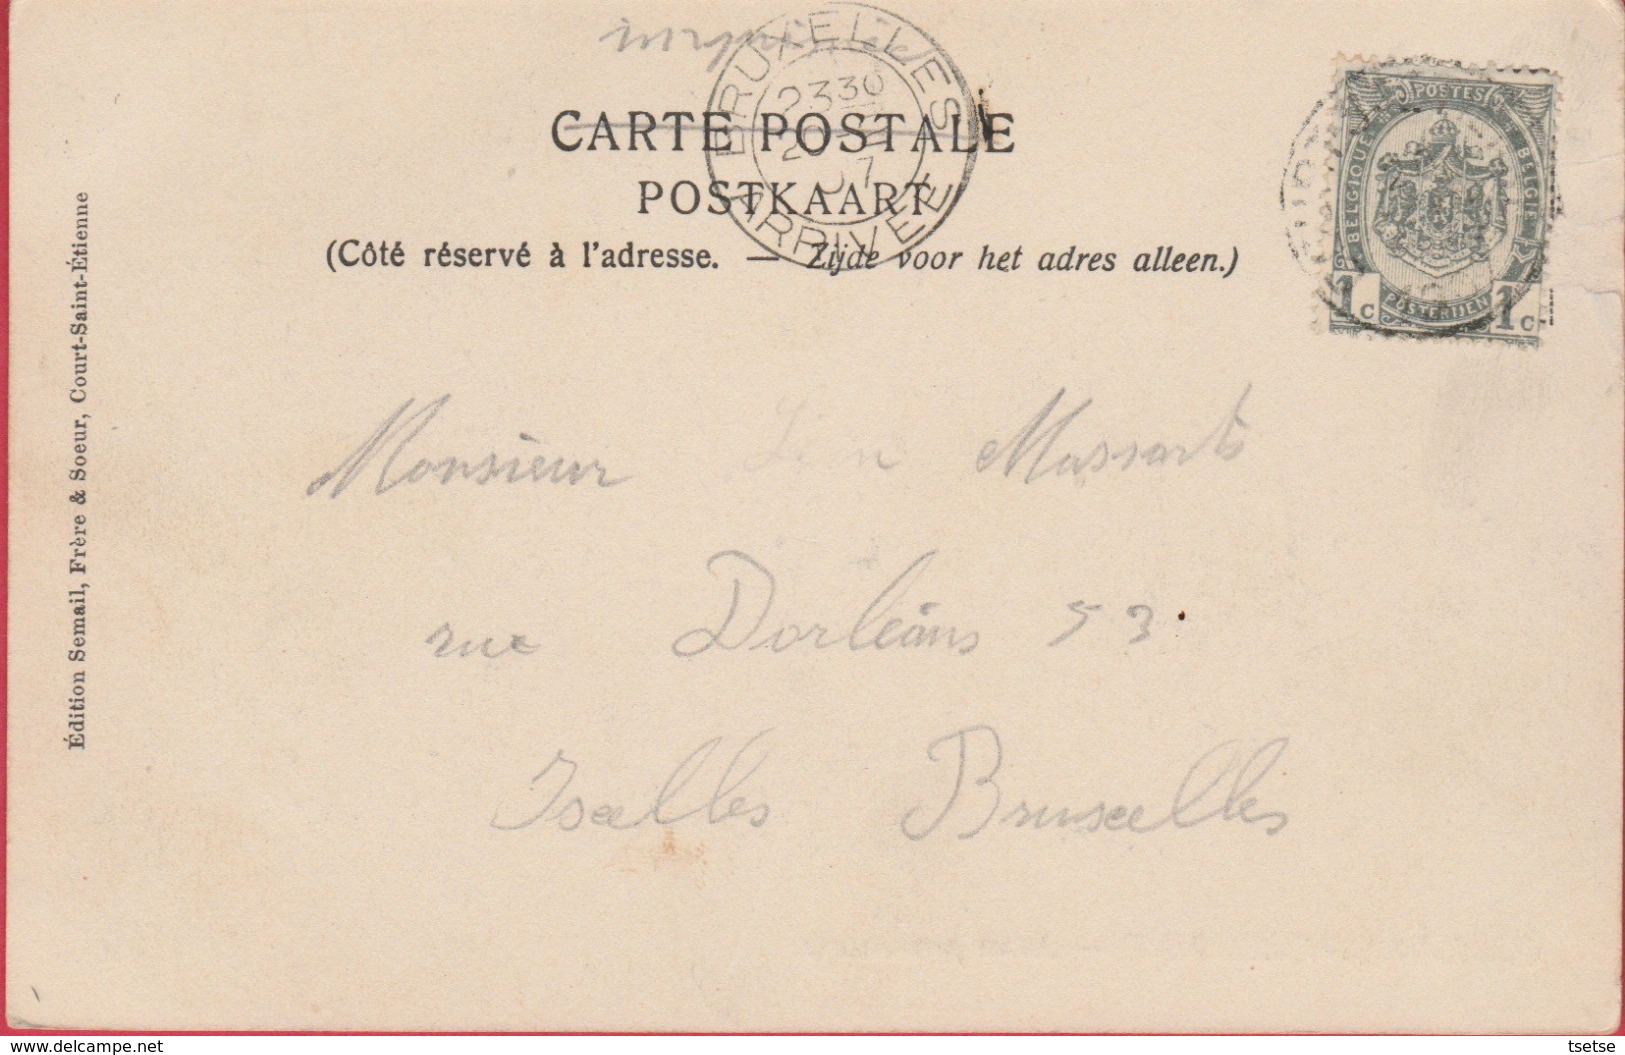 imprimé
CARTE POSTALE
POSTKAART
(Côté réservé à l'adresse. — Zijde voor het adres alleen.)
BRUXELLES
2330
07
ARRIVÉE
POSTES
BELGIQUE
BELGIË
POSTERIJEN
1c 1c
Édition Semail, Frère & Soeur, Court-Saint-Étienne
Monsieur Léon Massarts
rue Dorléans 53
Ixelles Bruxelles
tsetse